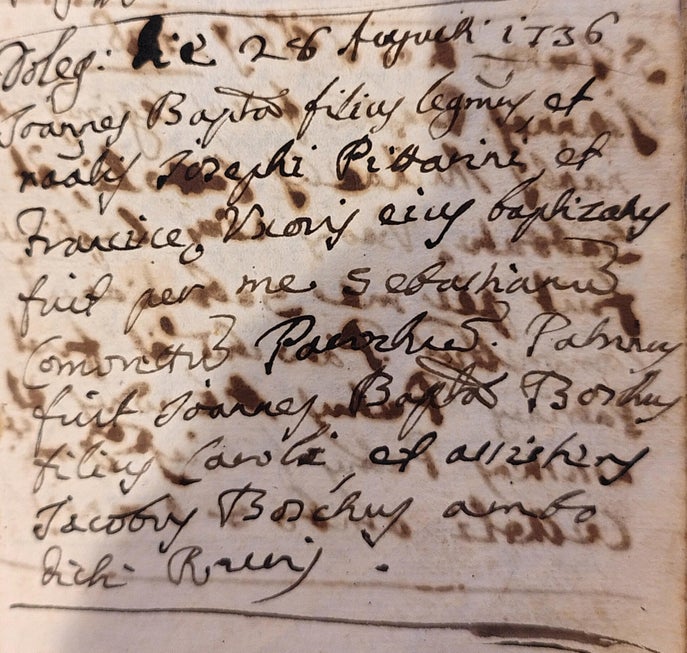 Doleg: die 28 Augusti 1736
Joannes Bapta filius legmus, et
nãalis Josephi Pittarini, et
Francisce, Uxoris eius baptizatus
fuit per me Sebastianũ
Comorettũ Parochũ. Patrinus
fuit Joannes Bapta Boschus
filius Caroli, et assistens
Jacobus Boschus ambo
dicti